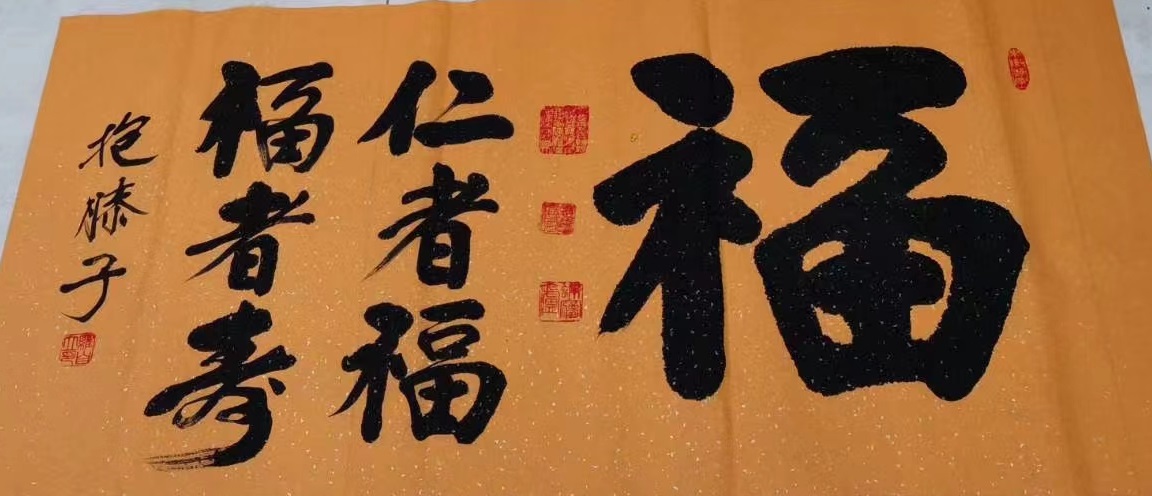 福
仁者福
福者寿
抱膝子